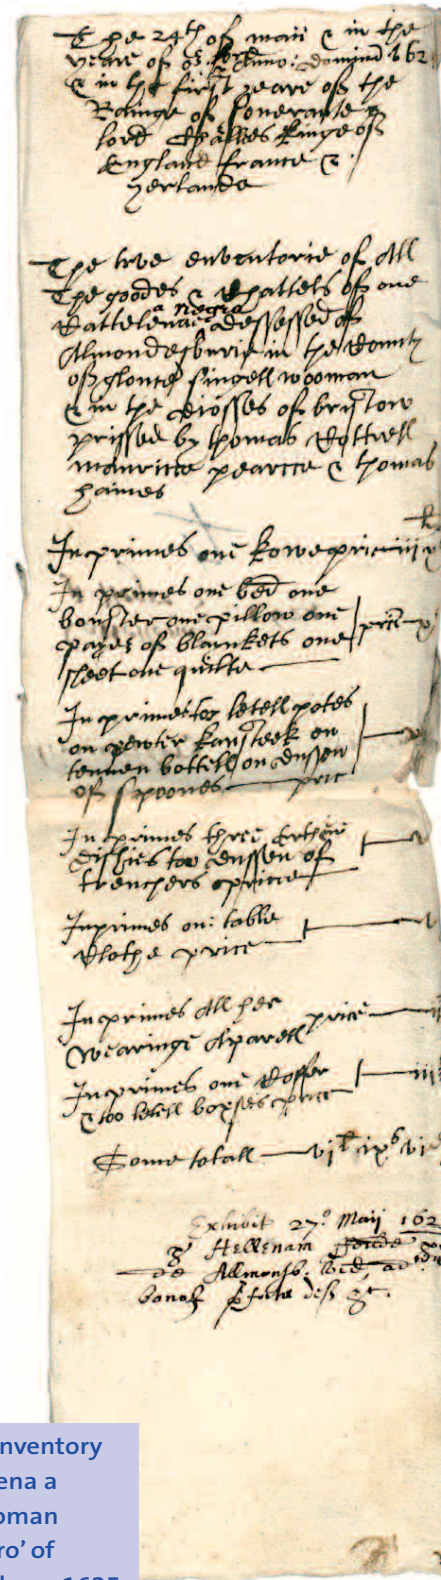 The 24th of maii & in the
yeare of or lord Anno: domini 162
& in the first yeare of the
Rainge of soverante
lord Charles Kinge of
England france &
yerlande
The trve enventorie of All
The goodes & Chattels of one
a negra
Cattelena desessed of
Almondesburie in the County
of glouc singell wooman
& in the diosses of bristow
prissed by thomas Cottrell
maurice pearce & thomas
haines
Inprimes one Kowe price iii
In primes one bed one
boulster one pillow one
payer of blankets one price
sheet one quilte
In primes too letell potes
on pewter kansteek on
tennen bottell on dussen
of spoones pric
In primes three erthen
dishies too dussen of
trenchers price
Inprimes on: table
Clothe price
Inprimes All her
wearinge Aparell price
Inprimes one Coffer
& too letell boxses price
Some totall vi ix vi
Exhibit 27o Maii 162
Hellenam
de Almonsb:
nventory
ena a
oman
ro' of
1625